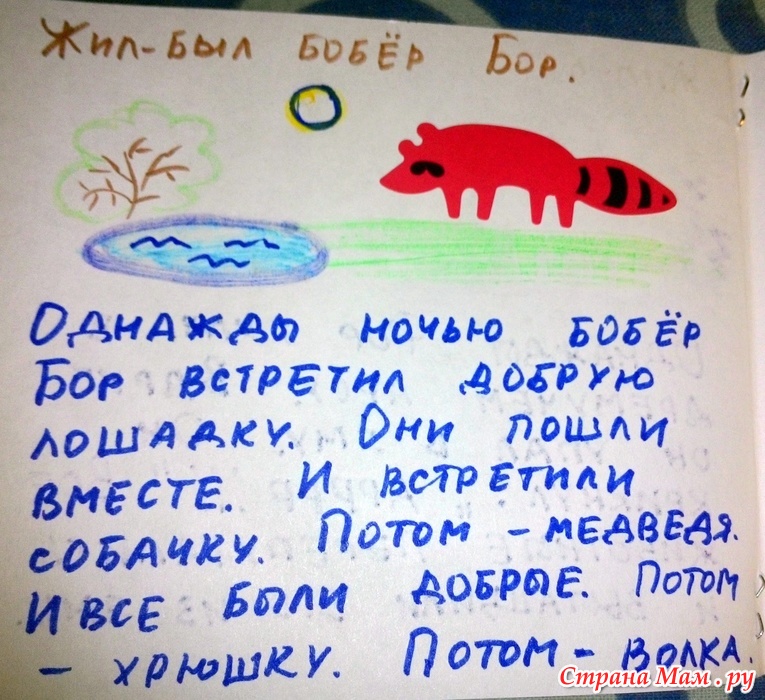 Жил-был бобёр Бор.
Однажды ночью бобёр
Бор встретил добрую
лошадку. Они пошли
вместе. И встретили
собачку. Потом - медведя.
И все были добрые. Потом
- хрюшку. Потом - волка.
Страна Мам.ру